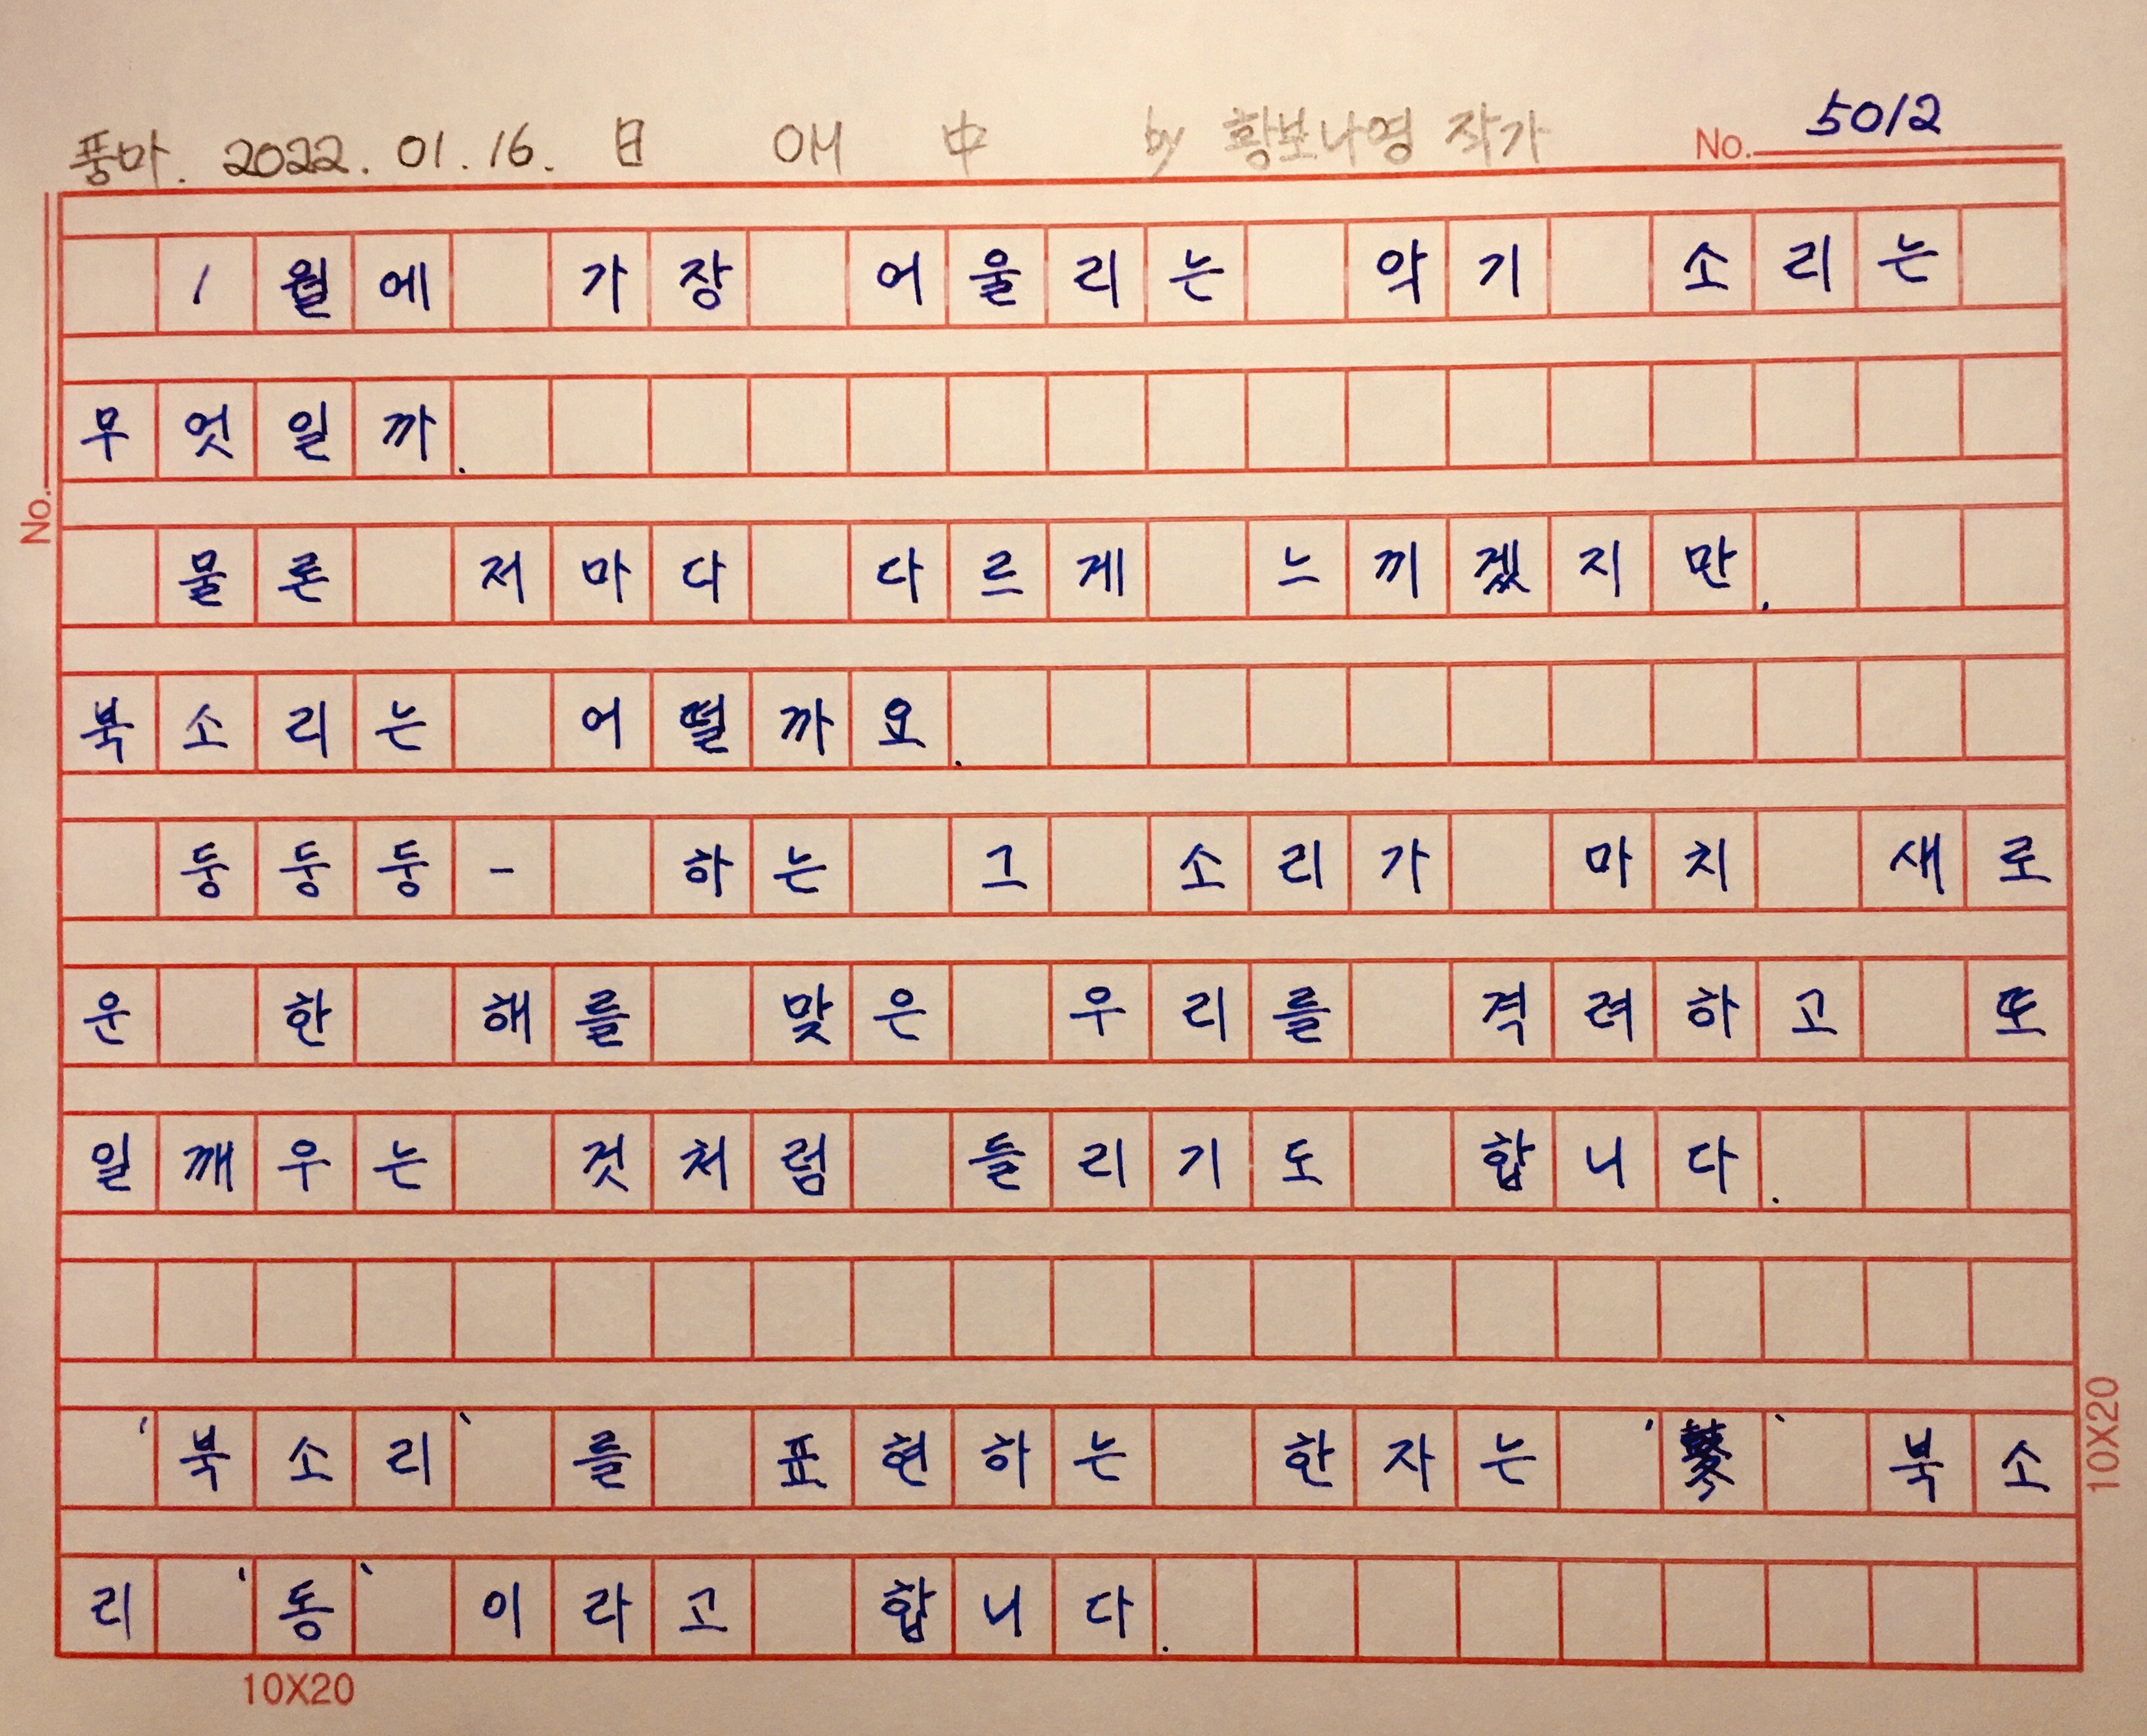 풍마. 2022. 01. 16. 日 애 中 by 황보나영 작가 No. 5012
1월에 가장 어울리는 악기 소리는
무엇일까.
물론 저마다 다르게 느끼겠지만.
북소리는 어떨까요.
둥둥둥- 하는 그 소리가 마치 새로
운 한 해를 맞은 우리를 격려하고 또
일깨우는 것처럼 들리기도 합니다.
'북소리'를 표현하는 한자는 ' ' 북소
리 '동'이라고 합니다.
No.
10X20
10X20